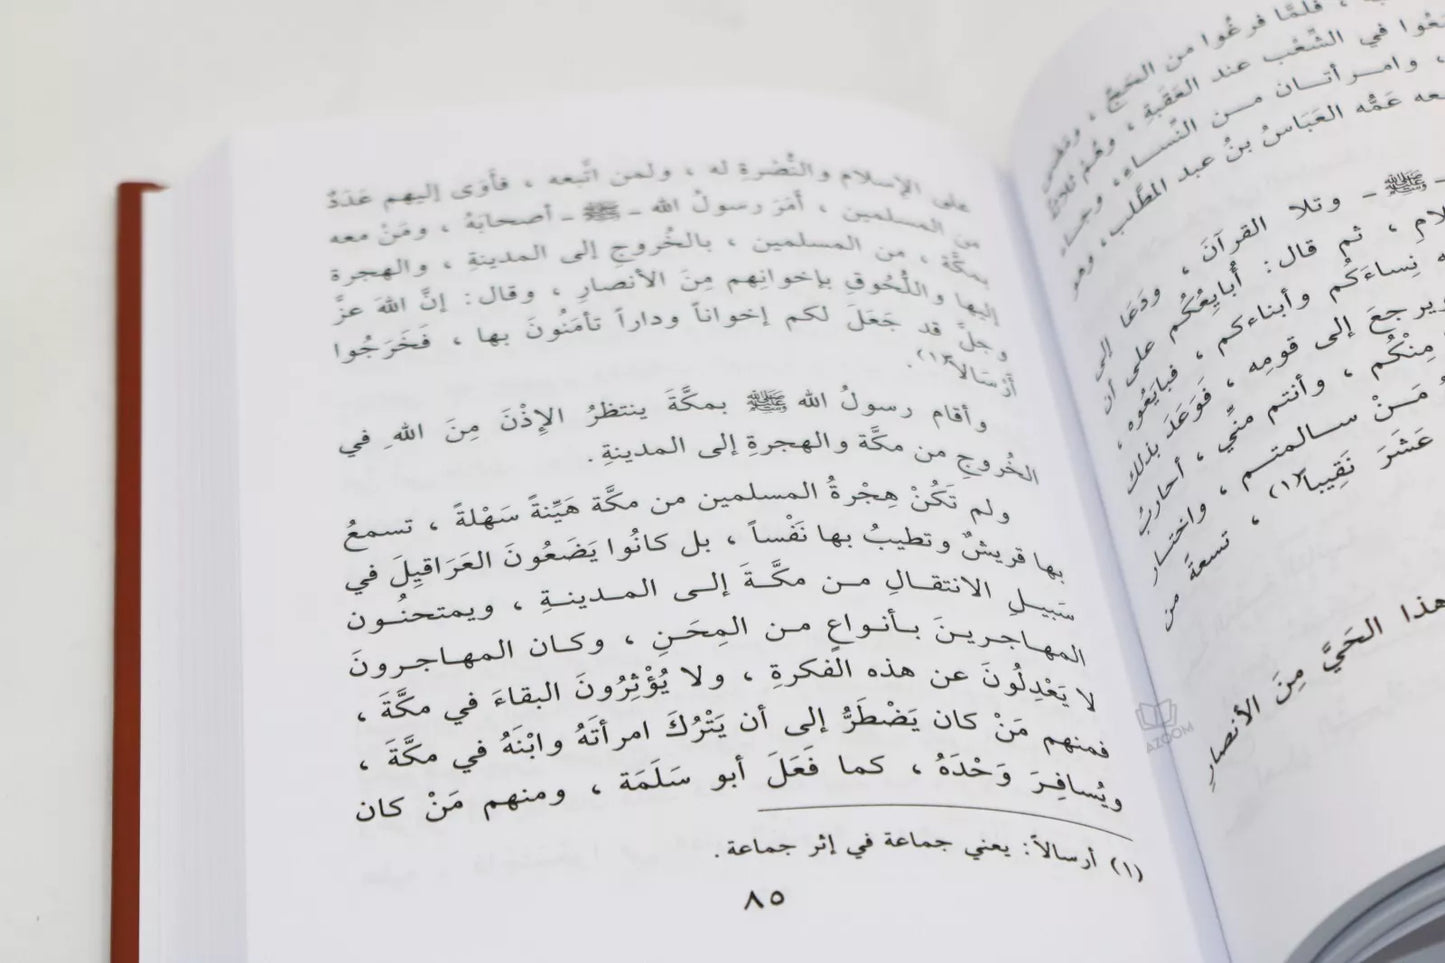 ، فلمَّا فرغُوا من الحَجِّ ،
في الشِّعْب عند العَقَبةِ ، وهُمْ ثلاثةٌ
، وامرأتان من النِّساءِ، وجاء
معه عَمُّه العَبَاسُ بنُ عبد المطَّلب، وهو
- ﷺ - وتلا القرآنَ ، ودَعَا إلى
، ثم قال: أُبايِعُكُم على أن
نِساءَكُم وأبناءكم ، فبايَعُوه ،
إلى قومِه ، فَوَعَدَ بذلك
مِنْكُم ، وأنتم منِّي ، أحاربُ
مَنْ سالمتم ، واختار
عَشَرَ نَقِيباً(١) ، تسعةً من
هذا الحَيَّ مِنَ الأنصارِ
على الإسلام والنُّصْرةِ له ، ولمن اتَّبعه ، فأوَى إليهم عَدَدٌ
من المسلمين ، أمَرَ رسولُ الله - ﷺ - أصحابَهُ ، ومَنْ معه
بمكَّة ، من المسلمين ، بالخُروجِ إلى المدينةِ ، والهجرة
إليها واللُّحُوقِ بإخوانِهم مِنَ الأنصارِ ، وقال: إنَّ اللهَ عزَّ
وجلَّ قد جَعَلَ لكم إخواناً وداراً تأمَنُونَ بها ، فَخَرَجُوا
أرْسَالاً(١) .
وأقام رسولُ الله ﷺ بمكَّةَ ينتظرُ الإِذْنَ مِنَ اللهِ في
الخُروجِ من مكَّة والهجرةِ إلى المدينةِ .
ولم تَكُنْ هِجْرةُ المسلمين من مكَّة هَيِّنةً سَهْلةً ، تسمعُ
بها قريشٌ وتطيبُ بها نَفْساً ، بل كانُوا يَضَعُونَ العَرَاقيِلَ في
سَبيلِ الانتقالِ من مكَّةَ إلى المدينةِ ، ويمتحنُون
المهاجرينَ بأنواعٍ من المِحَنِ ، وكان المهاجرونَ
لا يَعْدِلُونَ عن هذه الفكرةِ ، ولا يُؤْثِرُونَ البقاءَ في مكَّةَ ،
فمنهم مَنْ كان يَضْطَرُّ إلى أن يَتْرُكَ امرأتَهُ وابْنَهُ في مكَّةَ ،
ويُسافِرَ وَحْدَهُ ، كما فَعَلَ أبو سَلَمَة ، ومنهم مَنْ كان
(١) أرسالاً: يعني جماعة في إثر جماعة .
٨٥
AZOOM